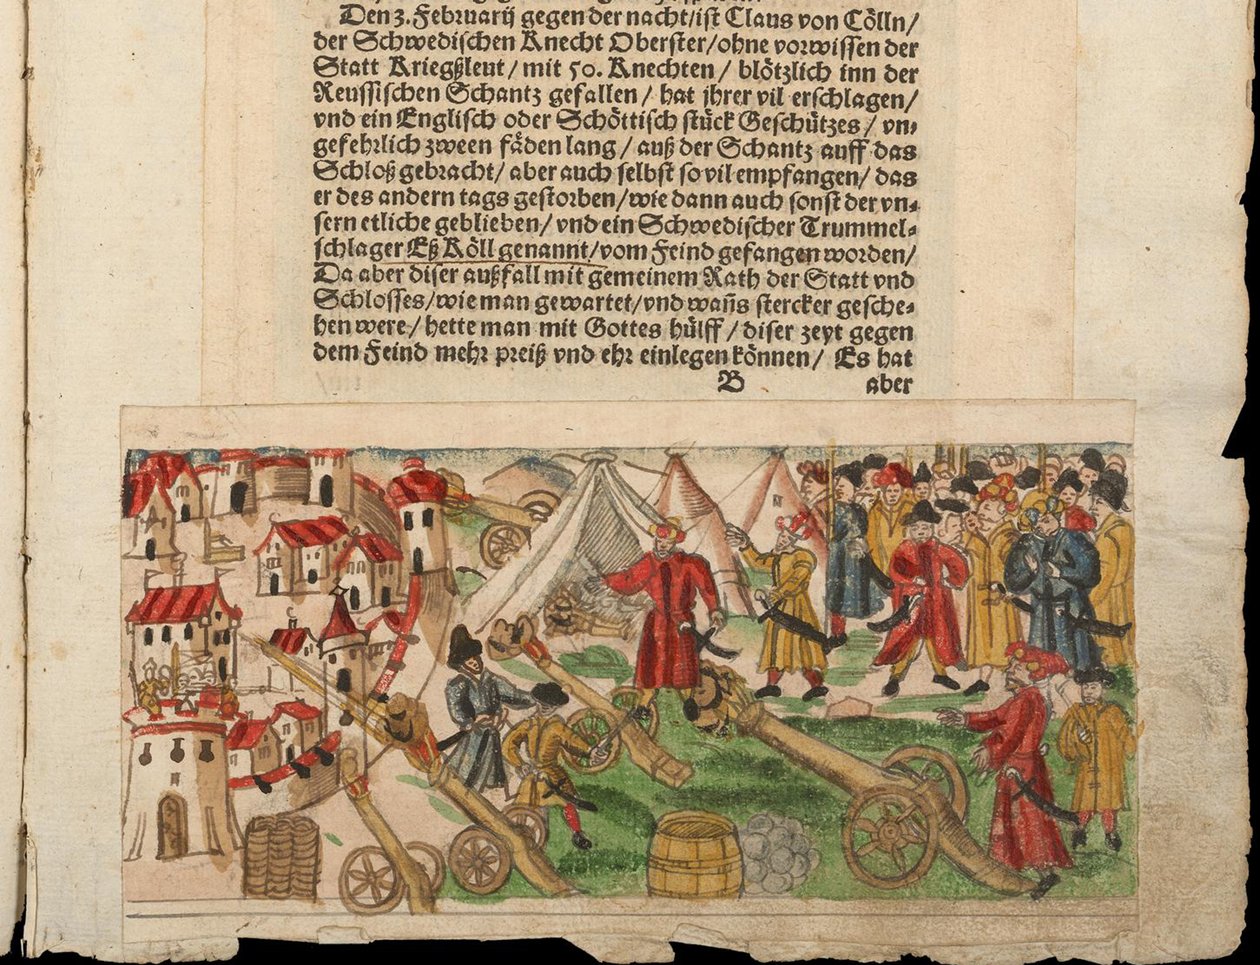 Den 3. Februarij gegen der nacht/ist Claus von Cölln/
der Schwedischen Knecht Oberster/ohne vorwissen der
Statt Kriegßleut/mit 50. Knechten/ blötzlich inn der
Reussischen Schantz gefallen/ hat jhrer vil erschlagen/
vnd ein Englisch oder Schöttisch stück Geschützes/ vn-
gefehrlich zween fäden lang/ auß der Schantz auff das
Schloß gebracht/ aber auch selbst so vil empfangen/ das
er des andern tags gestorben/wie dann auch sonst der vn-
sern etliche geblieben/ vnd ein Schwedischer Trummel-
schlager Eß Köll genannt/vom Feind gefangen worden/
Da aber diser außfall mit gemeinem Rath der Statt vnd
Schlosses/wie man gewartet/vnd wañs stercker gesche-
hen were/ hette man mit Gottes hülff/ diser zeyt gegen
dem Feind mehr preiß vnd ehr einlegen können/ Es hat
B aber